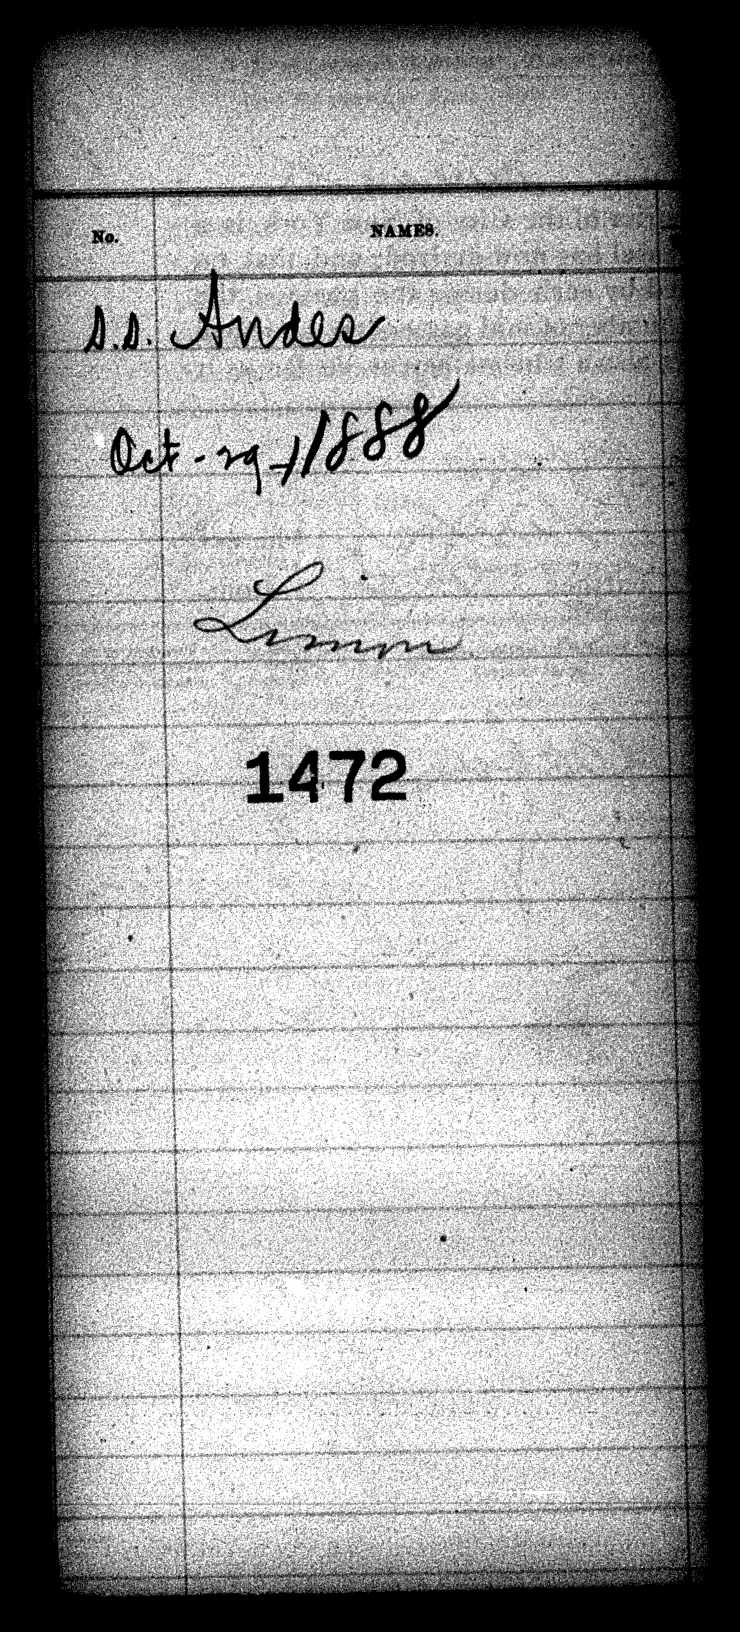 No. NAMES.
S.S. Andes
Oct-29-/1888
Limon
1472